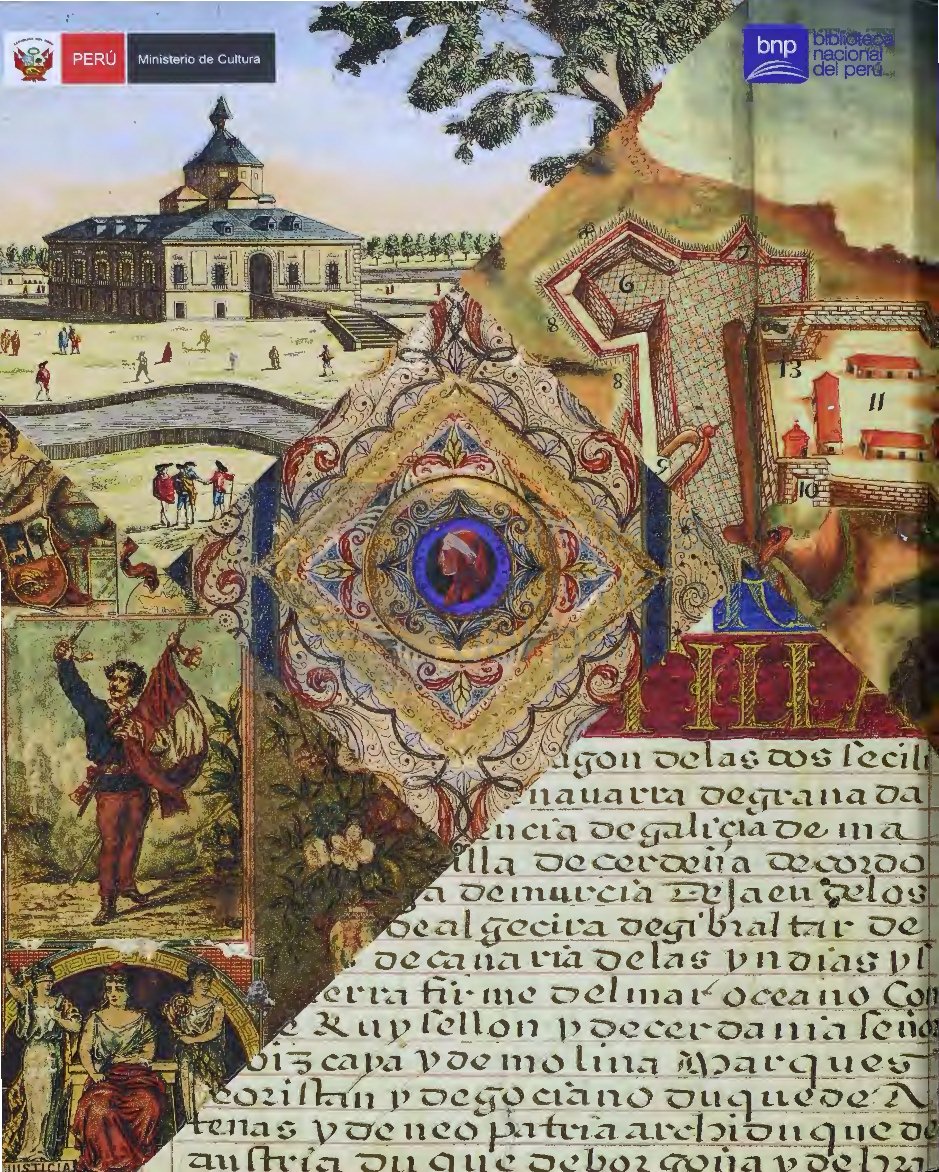 PERÚ
Ministerio de Cultura
bnp
biblioteca
nacional
del perú
6
7
8
8
9
13
11
10
TILLA
agon delas dos secili
nauarra degranada
encia degalicia de ma
illa decerdeña decordo
a demurcia dejaen delos
dealgecira degibraltar de
decanaria delas yndias yſ
ierra firme delmar oceano Con
e Ruysellon y decerdania señor
bizcaya y demolina Marques
coristan y degociano duquede A
tenas y deneopatria archiduque de
austria duque deborgoña y debra
JUSTICIA